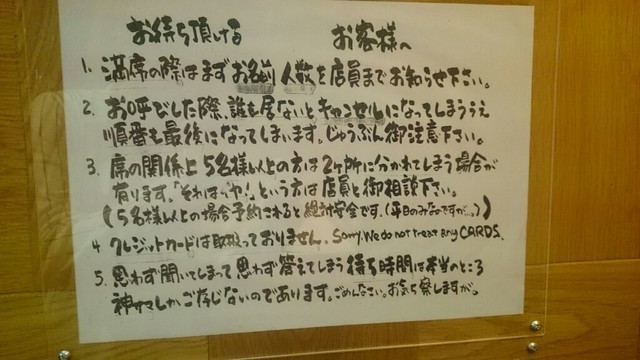 お待ち頂ける お客様へ
1. 満席の際はまずお名前 人数を店員までお知らせ下さい。
2. お呼びした際、誰も居ないとキャンセルになってしまううえ
順番も最後になってしまいます。じゅうぶん御注意下さい。
3. 席の関係上5名様以上の方は2ヶ所に分かれてしまう場合が
有ります。「それはいや!」という方は店員と御相談下さい。
(5名様以上の場合予約されると絶対安全です。(平日のみなですが…))
4 クレジットカードは取扱っておりません。Sorry. We do not treat any CARDS.
5. 思わず聞いてしまって思わず答えてしまう待ち時間は本当のところ
神サマしかご存じないのであります。ごめんなさい。お気も察しますが。